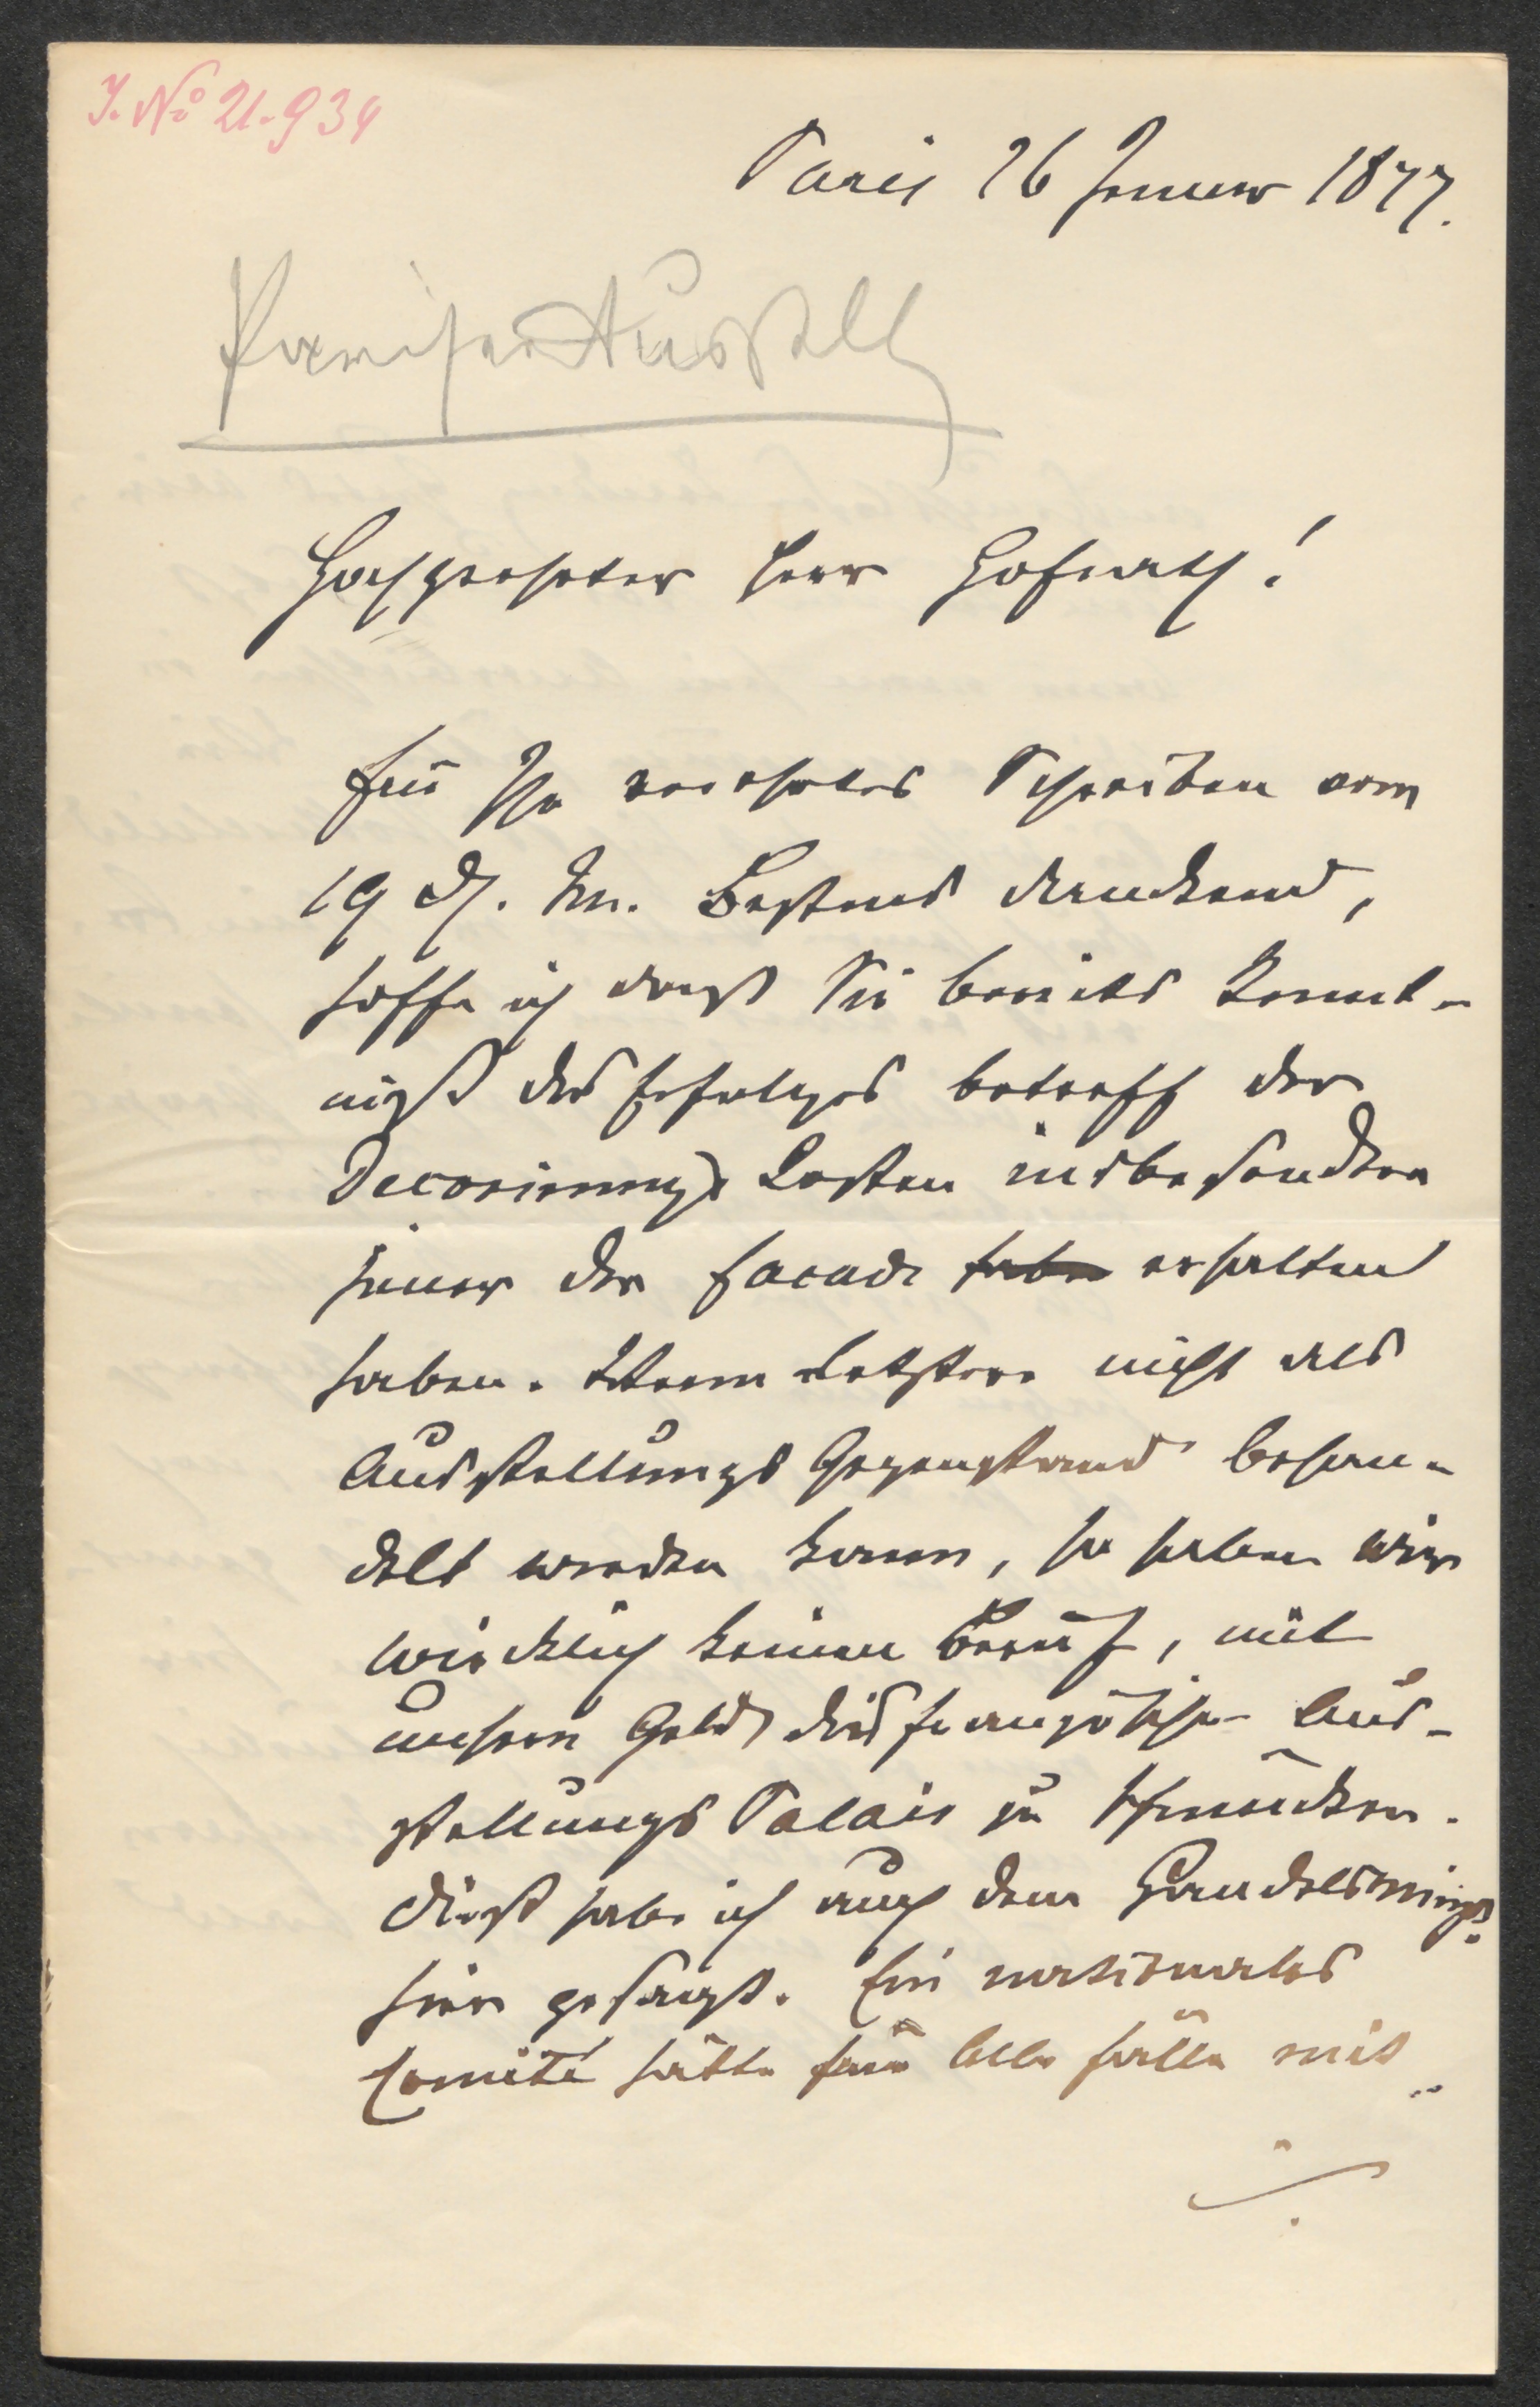 J. No 21.934
Paris 26 Jenner 1877.
Pariser Ausstellg
Hochgeehrter Herr Hofrath!
Für Ihr verehrtes Schreiben vom
19 ds. Mn. Bestens dankend,
hoffe ich dass Sie bereits Kennt-
niss des Erfolges betreff der
Decorierungs Kosten insbesondere
jener der Facade habe erhalten
haben. Wenn Letztere nicht als
Ausstellungs Gegenstand behan-
delt werden kann, so haben wir
wirklich keinen Beruf, mit
unsern Geld das französische Aus-
stellungs Palais zu schmücken.
Diess habe ich auch dem Handelsminist.
hier gesagt. Ein nationales
Comité hätte für Alle Fälle mit
./.